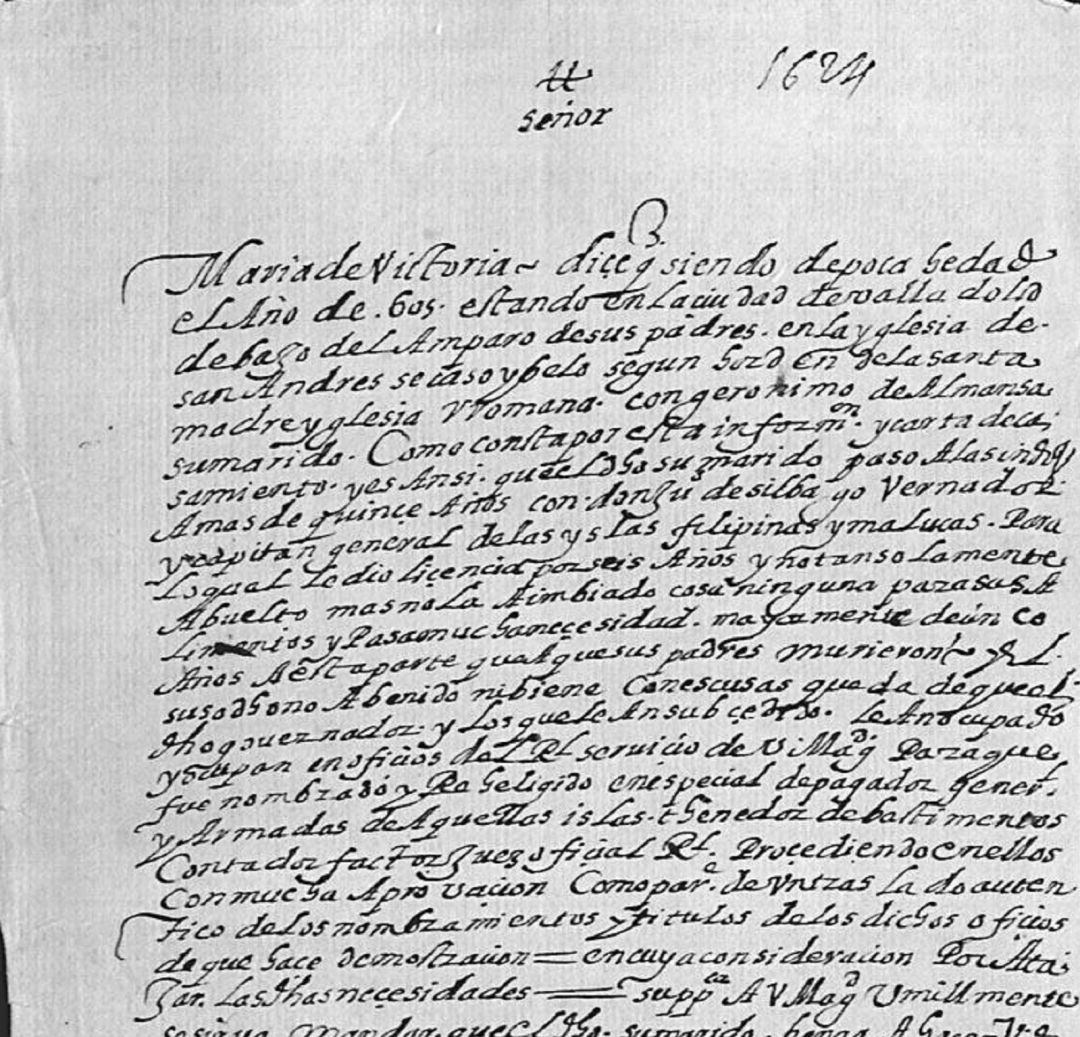 1624
señor
Maria de Victoria diçe q siendo de poca hedad
el Año de .605. estando en la ciudad de valladolid
debaxo del Amparo de sus padres. en la yglesia de
san Andres se caso y belo segun horden de la santa
madre yglesia Rromana. con geronimo de Almansa
su marido. Como consta por esta informon. y carta de ca
samiento. y es Ansi. que el dho su marido paso A las indias
A mas de quinçe Años con don Ju de silba go vernador
y capitan general de las yslas filipinas y malucas. Para
lo qual le dio liçencia por seis Años y no tan solamente
A buelto mas no la A imbiado cosa ninguna para sus A
limentos y Pasa mucha neçesidad. mayormente de un co
Años A esta parte que sus padres murieron y el
susodho no A benido ni biene Con escusas que da de que el
dho governador. y los que le An subçedido. le An ocupado
y ocupan en ofiçios del Rl serviçio de V Magd Para que
fue nombrado y Re heligido en especial de pagador generl
y Armadas de Aquellas islas. thenedor de bastimentos
Contador factor Juez ofiçial Rl Proçediendo en ellos
Con mucha Aprovacion Como par.e de vn traslado auten
tico de los nombramientos y titulos de los dichos ofiçios
de que haçe demostracion = en cuya consideracion Por Ata
Jar. las dhas neçesidades = suppca A V Magd Umillmente
se sirva mandar. que el dho. su marido. benga A haçer